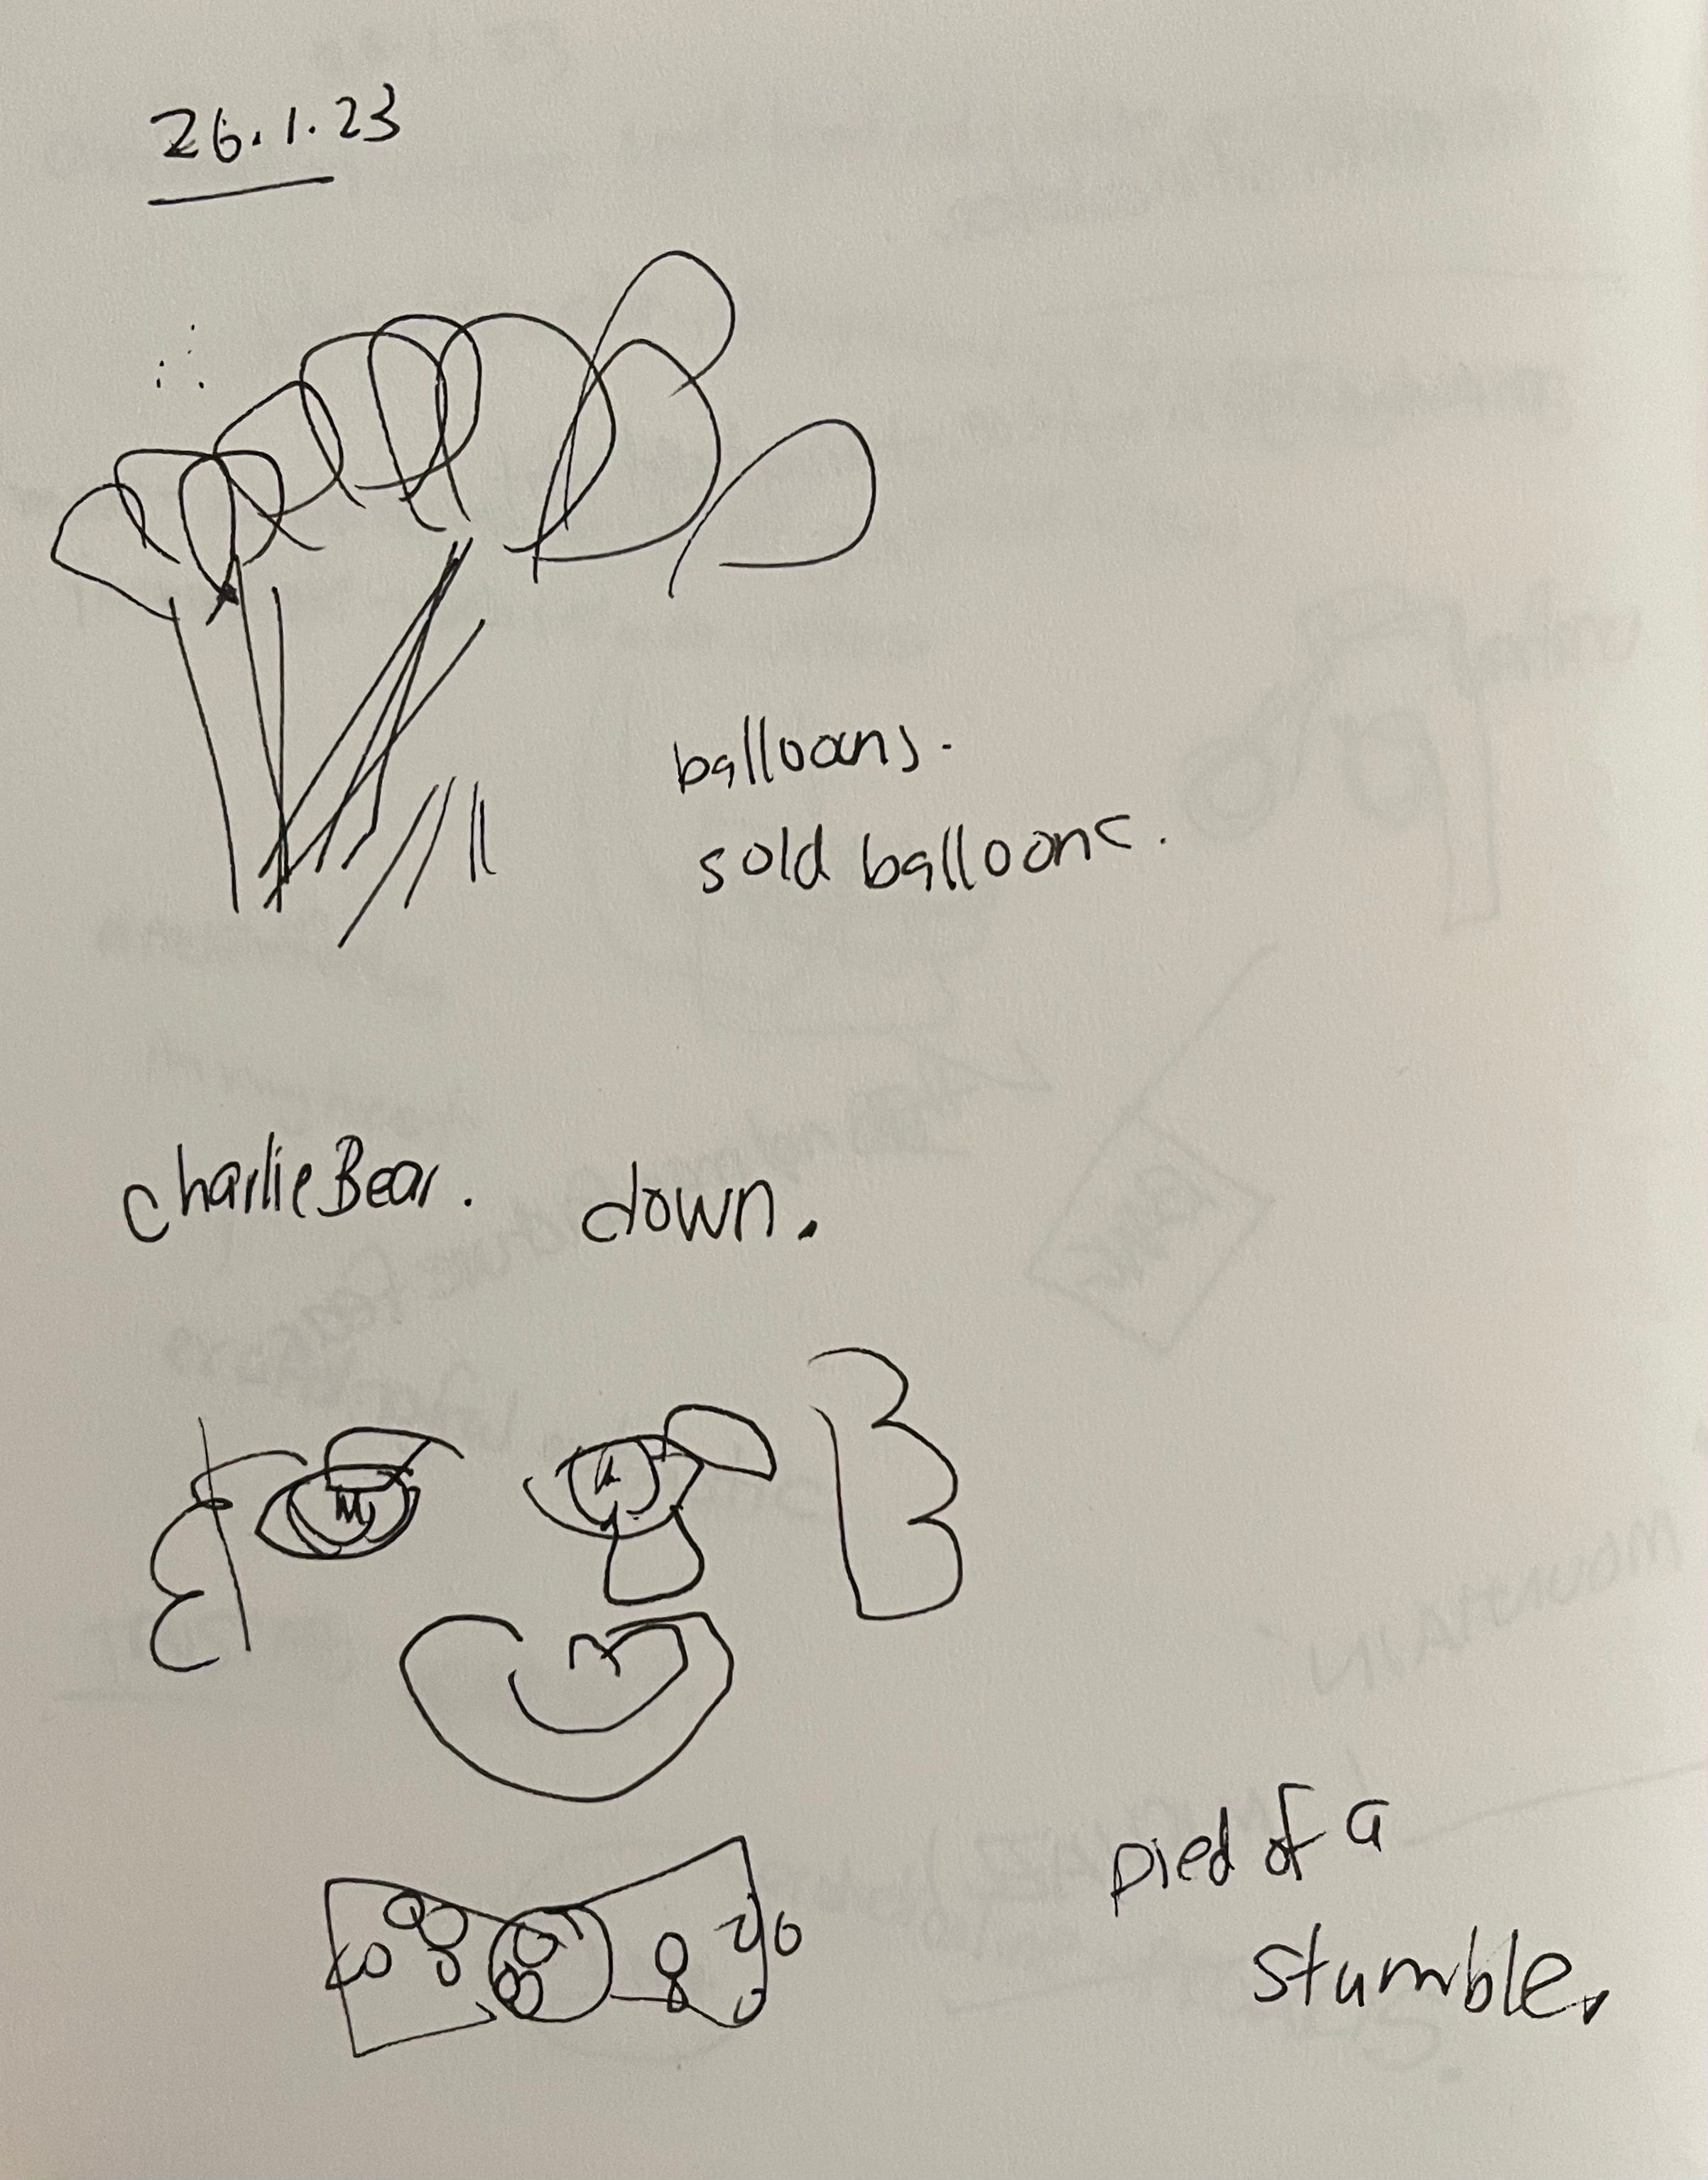 26.1.23
balloons.
sold balloons.
charlie Bear. down.
pied of a
stumble.